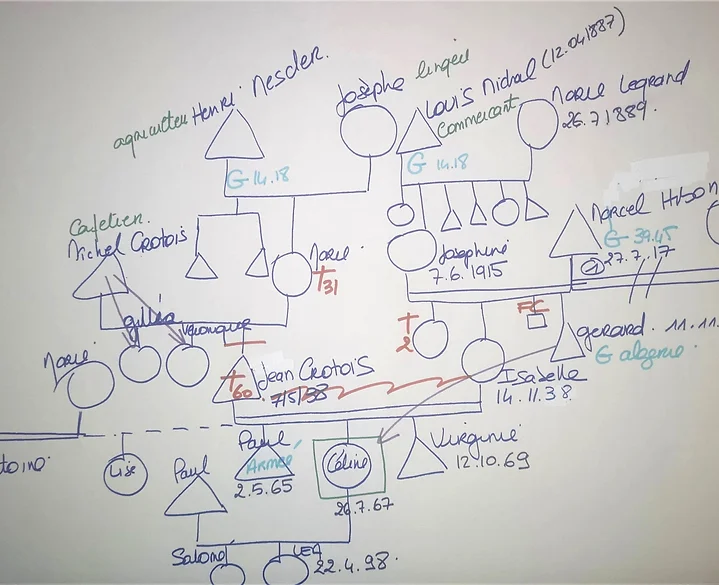 Henri Nesder.
agriculteur
Josèphe
lingère
Louis Nidral (12.041887)
Commercant
Marie Legrand
26.71889.
G 14.18
G 14.18
Cafetier.
Michel Crotois
Marie
†31
Joséphine
7.6.1915
Marcel
G 39.45
1
27.7.17
gillia
Véronique
†
2
FC
gerard. 11.11.
G algerie.
Marie
†60
Jean Crotois
7/5/38
Isabelle
14.11.38
toino.
Lise
Paul
Paul
Armée
2.5.65
Céline
26.7.67
Virginie
12.10.69
Salomé
LEA
22.4.98.